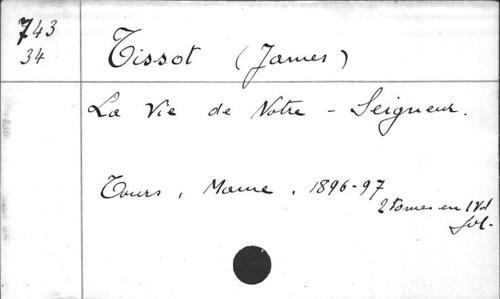 743
34
Tissot (James)
La Vie de Notre - Seigneur.
Tours, Mame, 1896-97
2 Tomes en 1 Vol
fol.